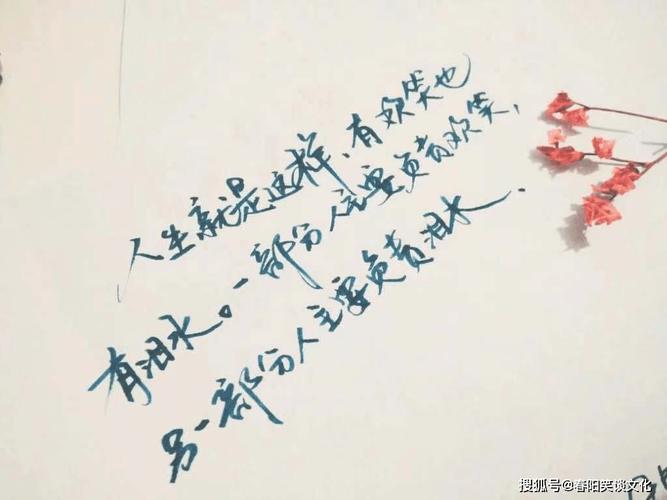 人生就是这样、有欢笑也
有泪水。一部分人主要负责欢笑，
另一部分人主要负责泪水.
搜狐号@春阳笑谈文化